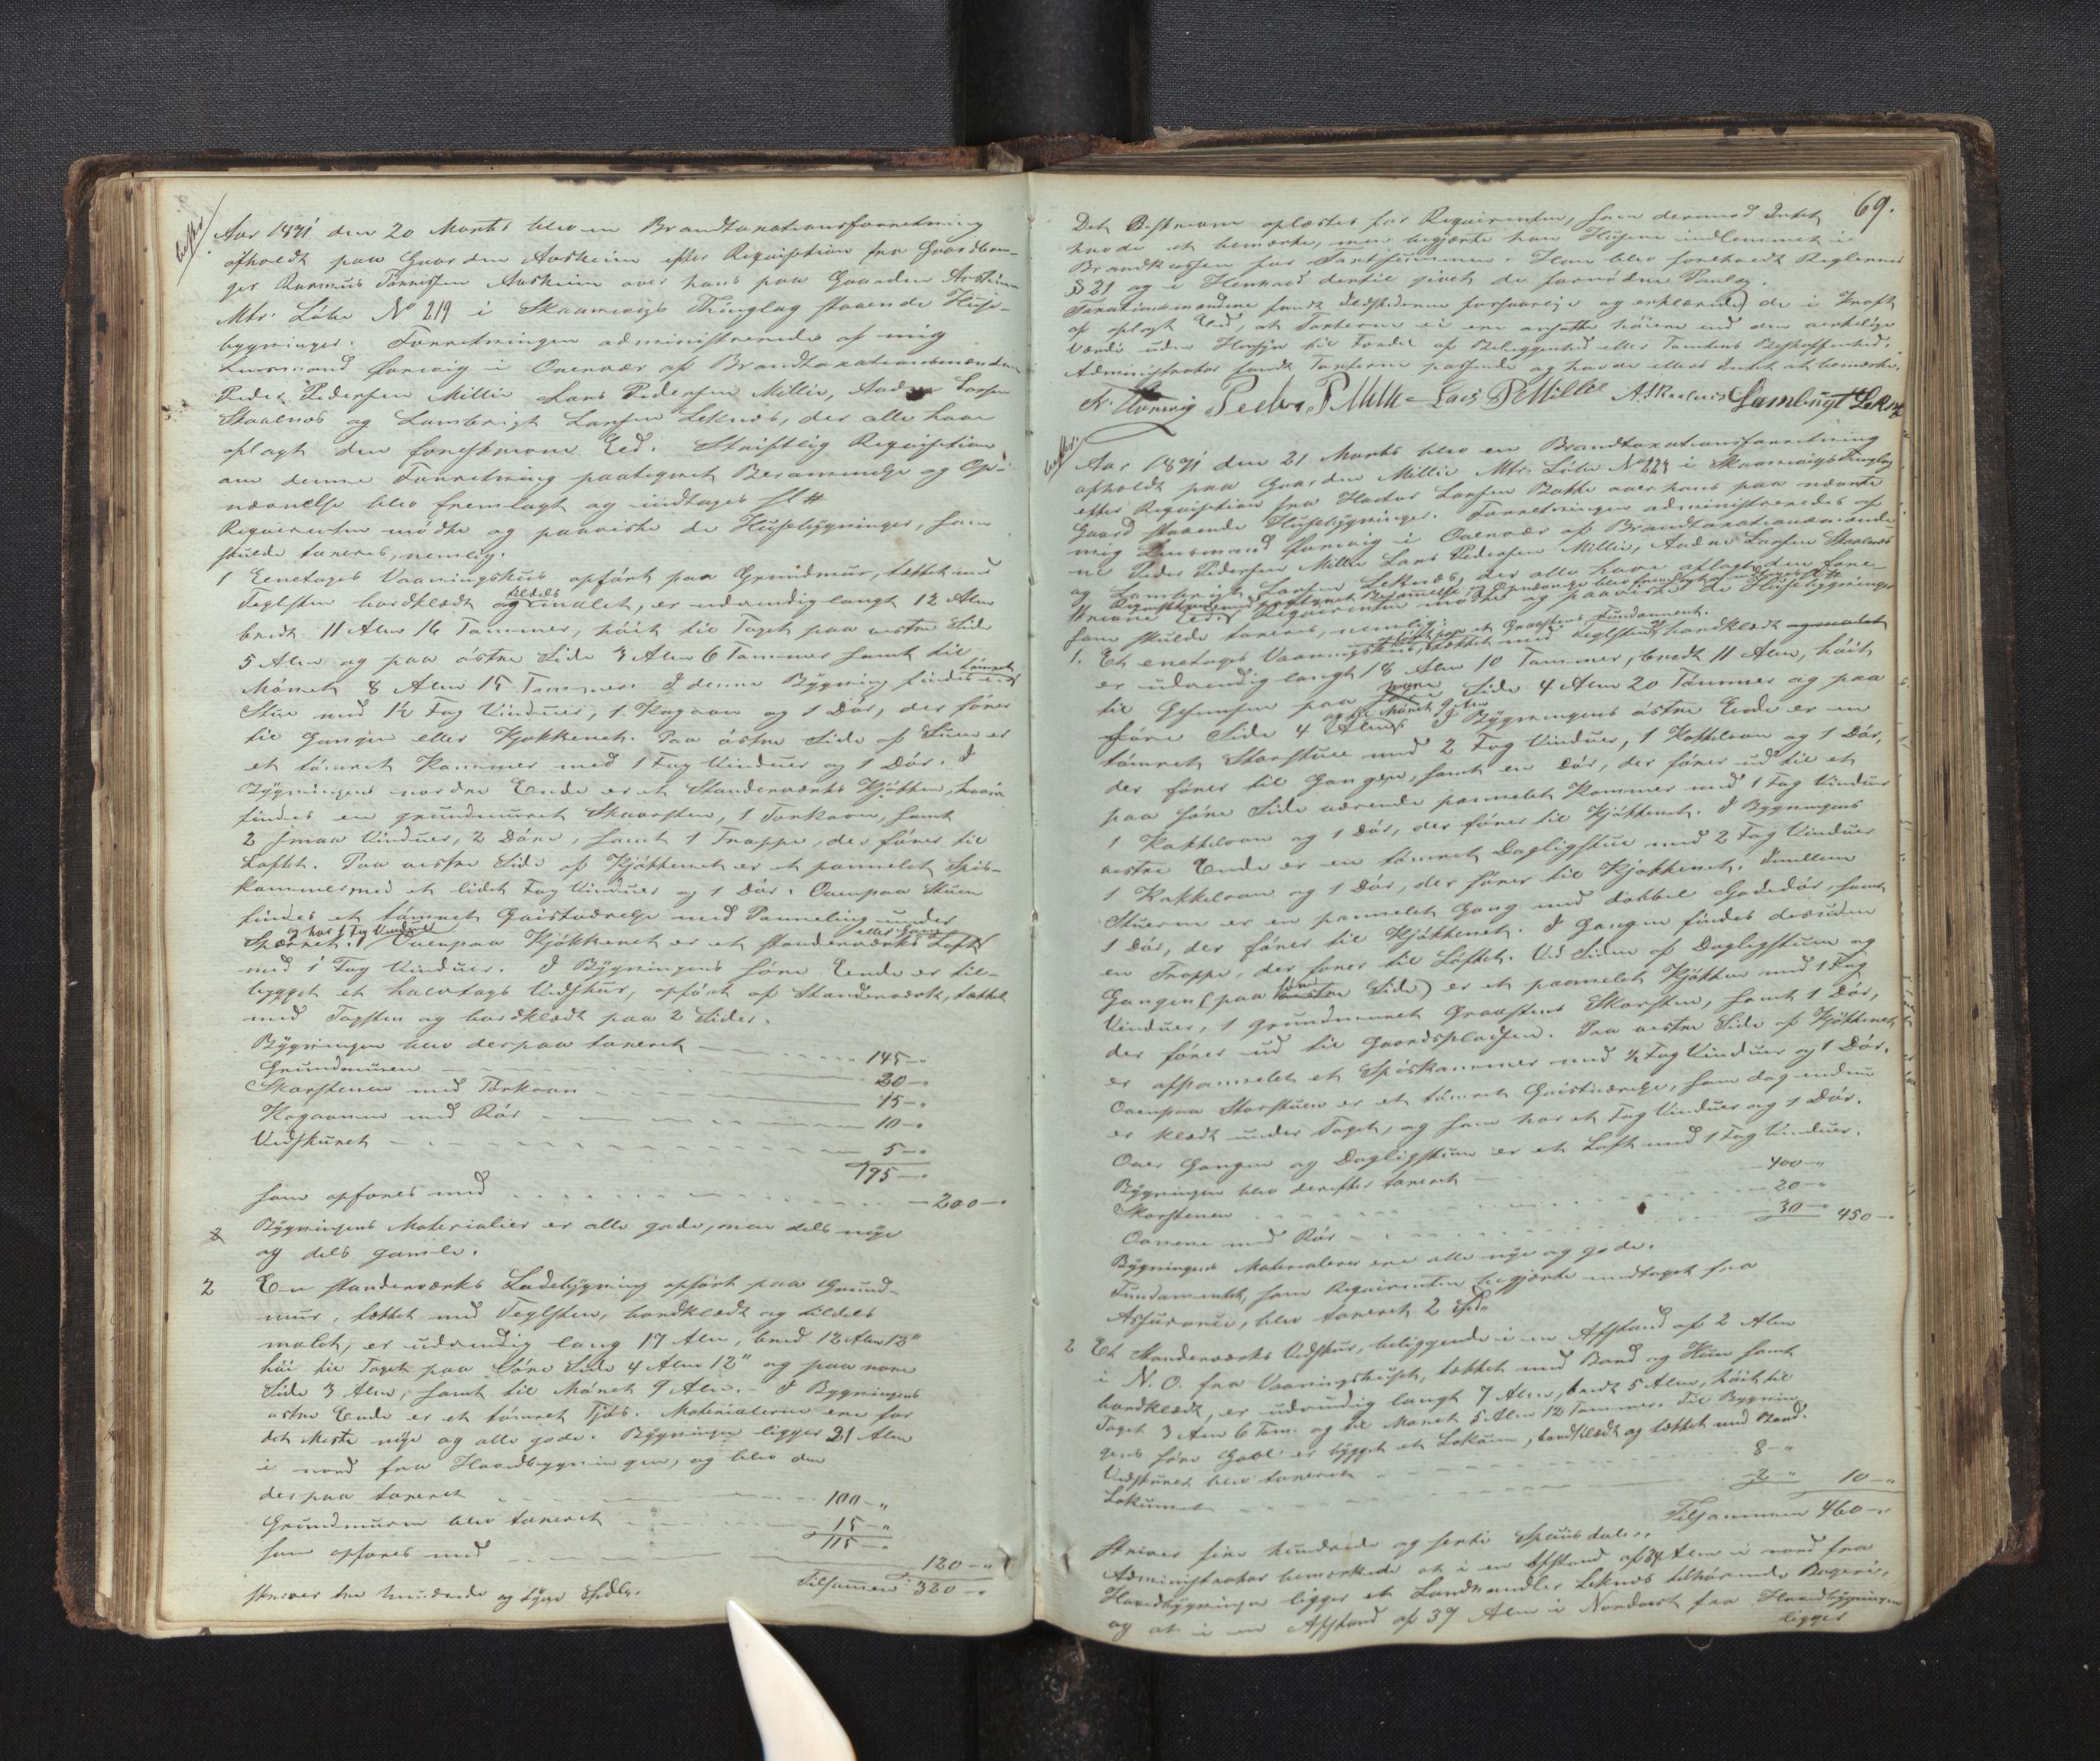 Aar 1871 den 20 Marts blev en Brandtaxationsforretning
afholdt paa Gaarden Aasheim efter Requisition fra Gaardbru-
ger Rasmus Tønnesen Aasheim over hans paa Gaarden Aasheim
Mtr. Løbe No 219 i Skaanevigs Thinglag staaende Huse-
bygninger. Forretningen administreredes af mig
Lensmand i Ovenvær af Brandtaxationsmændene
Peder Pedersen Millie Lars Pedersen Millie, Andreas Larsen
Skaalnes og Lambrigt Larsen Leknes, der alle have
aflagt den foreskrevne Eed. Skriftlig Requisition
om denne Forretning paategnet Berammelse og Op-
nævnelse blev fremlagt og indtages sl #
Requirenten mødte og paaviste de Husebygninger, som
skulde taxeres, nemlig:
1 Eenetages Vaaningshus opført paa Grundmur, tækket med
Teglsten bordklædt og tildels malet, er udvendig langt 12 Alen
bredt 11 Alen 16 Tommer, høit til Taget paa vestre Side
5 Alen og paa østre Side 3 Alen 6 Tommer samt til
Mønet 8 Alen 15 Tommer. I denne Bygning findes en tømret
Stue med 1½ Fag Vinduer, 1 Kogovn og 1 Dør, der fører
til Gangen eller Kjøkkenet. Paa østre Side af Stuen er
et tømret Kammer med 1 Fag Vinduer og 1 Dør. I
Bygningens nordre Ende er et Standerværks Kjøkken, hvori
findes en grundmuret Skorsten, 1 Torkovn, samt
2 smaa Vinduer, 2 Døre, samt 1 Trappe, der fører til
Loftet. Paa vestre Side af Kjøkkenet er et pannelet Spis-
kammer med et lidet Fag Vinduer og 1 Dør. Ovenpaa Stuen
findes et tømret Gjæstværelse med Panneling under
Sperret. og har 1 Fag Vinduer Ovenpaa Kjøkkenet er et standerværks Loft eller Gang
med 1 Fag Vinduer. I Bygningens søre Ende er til-
bygget et halvtags Vedskur, opført af Standerværk, tækket
med Tagsten og bordklædt paa 2 Sider.
Bygningen blev derpaa taxeret 145 - "
Grundmuren 20 - "
Skorstenen med Torkovn 15 - "
Kogovnen med Rør 10 - "
Vedskuret 5 - "
195 - "
som opføres med 200 - "
Bygningens Materialier er alle gode, men dels nye
og dels gamle.
2 En standerværks Ladebygning opført paa Grund-
mur, tækket med Teglsten, bordklædt og tildels
malet, er udvendig lang 17 Alen, bred 12 Alen 12"
høi til Taget paa søre Side 4 Alen 12" og paa nore
Side 3 Alen, samt til Mønet 9 Alen. - I Bygningens
østre Ende er et tømret Fjøs. Materialerne ere for
det Meste nye og alle gode. Bygningen ligger 21 Alen
i nord fra Hovedbygningen, og blev den
derpaa taxeret 100 - "
Grundmuren blev taxeret 15 - "
115 - "
som opføres med 120 - "
Tilsammen 320 - "
skriver tre hundrede og tyve Spdlr.
69.
Det Beskrevne oplæstes for Requirenten, som dermod Intet
havde at bemærke, men begjærte han Husene indlemmet i
Brandkassen for Taxtsummen. Han blev foreholdt Reglernes
§ 21 og i Henhold dertil givet de fornødne Paalæg.
Taxationsmændene fandt Ildstederne forsvarlige og erklærede de i Kraft
af aflagt Eed, at Taxterne ei ere ansatte høiere end den virkelige
Værdi uden Hensyn til Fordel af Beliggenhed eller Tomtens Beskaffenhed.
Administrator fandt Taxterne passende og havde ellers Intet at bemærke.
Peder P Millie Lars P Millie Lambrigt L Leknes
Aar 1871 den 21 Marts blev en Brandtaxationsforretning
afholdt paa Gaarden Millie Mtr. Løbe No 224 i Skaanevigs Thinglag
efter Requisition fra Larsen Bakke over hans paa nævnte
Gaard staaende Husebygninger. Forretningen administreredes af
mig Lensmand i Ovenvær af Brandtaxationsmænde-
ne Peder Pedersen Millie Lars Pedersen Millie, Andreas Larsen Skaalnes
og Lambrigt Larsen Leknes, der alle have aflagt den fore-
skrevne Eed. Requirenten mødte og paaviste de Husebygninger
som skulde taxeres, nemlig:
1. Et enetages Vaaningshus, opført paa et Graastens Fundament. tækket med Teglsten, bordklædt og malet
er udvendig langt 18 Alen 10 Tommer, bredt 11 Alen, høit
til Gesimsen paa nore Side 4 Alen 20 Tommer og paa
søre Side 4 Alen og til Mønet 9 Alen I Bygningens østre Ende er en
tømret Storstue med 2 Fag Vinduer, 1 Kakkelovn og 1 Dør,
der fører til Gangen, samt en Dør, der fører ud til et
paa søre Side værende pannelet Kammer med 1 Fag Vinduer
1 Kakkelovn og 1 Dør, der fører til Kjøkkenet. I Bygningens
vestre Ende er en tømret Dagligstue med 2 Fag Vinduer
1 Kakkelovn og 1 Dør, der fører til Kjøkkenet. Imellem
Stuerne er en pannelet Gang med dobbel Gadedør, samt
1 Dør, der fører til Kjøkkenet. I Gangen findes desuden
en Trappe, der fører til Loftet. Ved Siden af Dagligstuen og
Gangen (paa søre Side) er et pannelet Kjøkken med 1 Fag
Vinduer, 1 grundmuret Graastens Skorsten, samt 1 Dør,
der fører ud til Gaardspladsen. Paa vestre Side af Kjøkkenet
er afpannelet et Spiskammer med ½ Fag Vinduer og 1 Dør.
Ovenpaa Storstuen er et tømret Gjæstværelse, som dog endnu
er klædt under Taget, og som har et Fag Vinduer og 1 Dør.
Over Gangen og Dagligstuen er et Loft med 1 Fag Vinduer.
Bygningen blev derefter taxeret 400 - "
Skorstenen 20 - "
Ovnene med Rør 30 - " 450 - "
Bygningens Materialerer ere alle nye og gode.
Fundamentet, som Requirenten begjærte undtaget fra
Assurance, blev taxeret 2 Spd"
2 Et Standerværks Vedskur, beliggende i en Afstand af 2 Alen
i N. O. fra Vaaningshuset, tækket med Bord og Hun samt
bordklædt, er udvendig langt 7 Alen, bredt 5 Alen, høit til
Taget 3 Alen 6 Tom. og til Mønet 5 Alen 12 Tommer. Til Bygnin-
gens søre Gavl er bygget et Lokum, bordklædt og tækket med Bord.
Vedskuret blev taxeret 8 - "
Lokummet 2 - " 10 - "
Tilsammen 460 - "
skriver fire hundrede og sexti Speciedaler.
Administrator bemærkede at i en Afstand af 34 Alen i nord fra
Hovedbygningen ligger et Landhandler Leknes tilhørende Bageri,
og at i en Afstand af 37 Alen i Nordvest fra Hovedbygningen
ligger